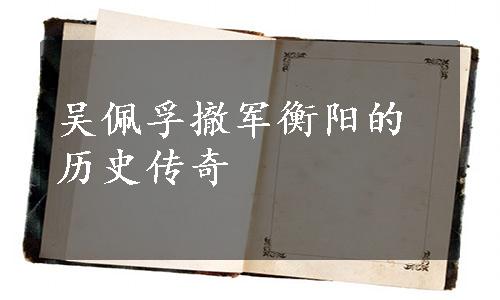 吴佩孚撤军衡阳的
历史传奇